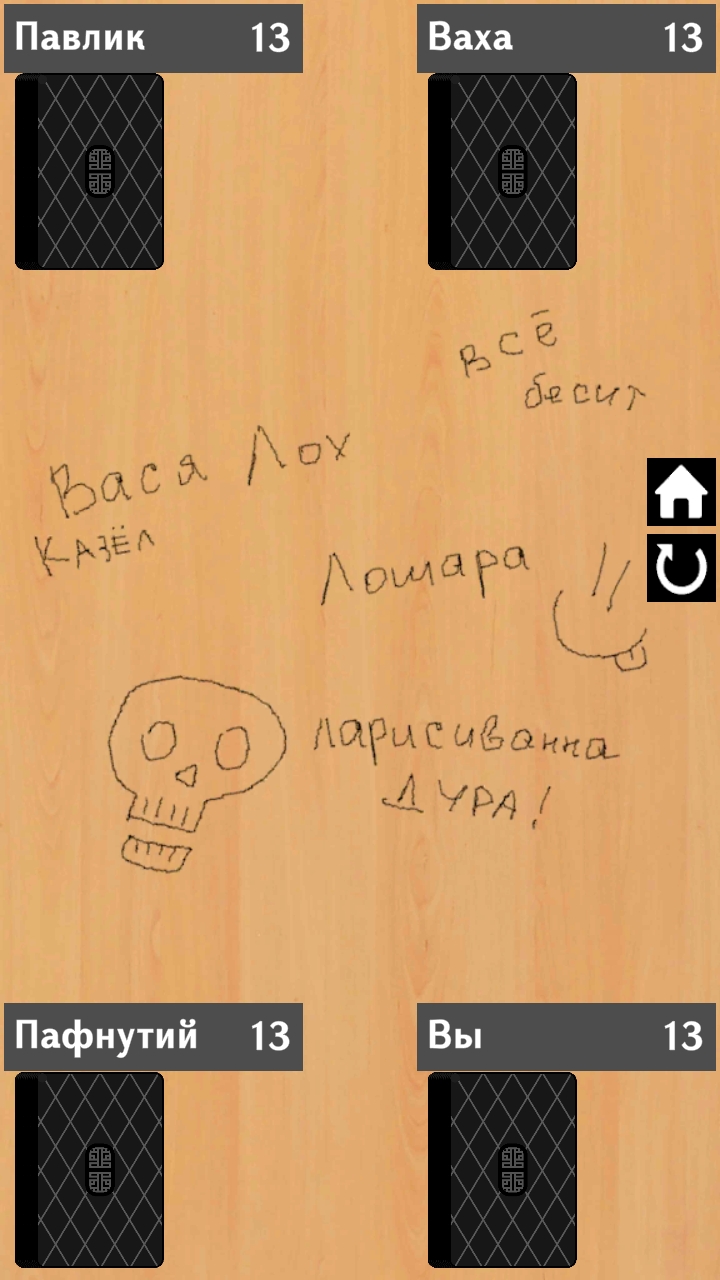 Павлик 13
Ваха 13
всё
бесит
Вася Лох
КАЗЁЛ
Лошара
ларисиванна
ДУРА!
Пафнутий 13
Вы 13